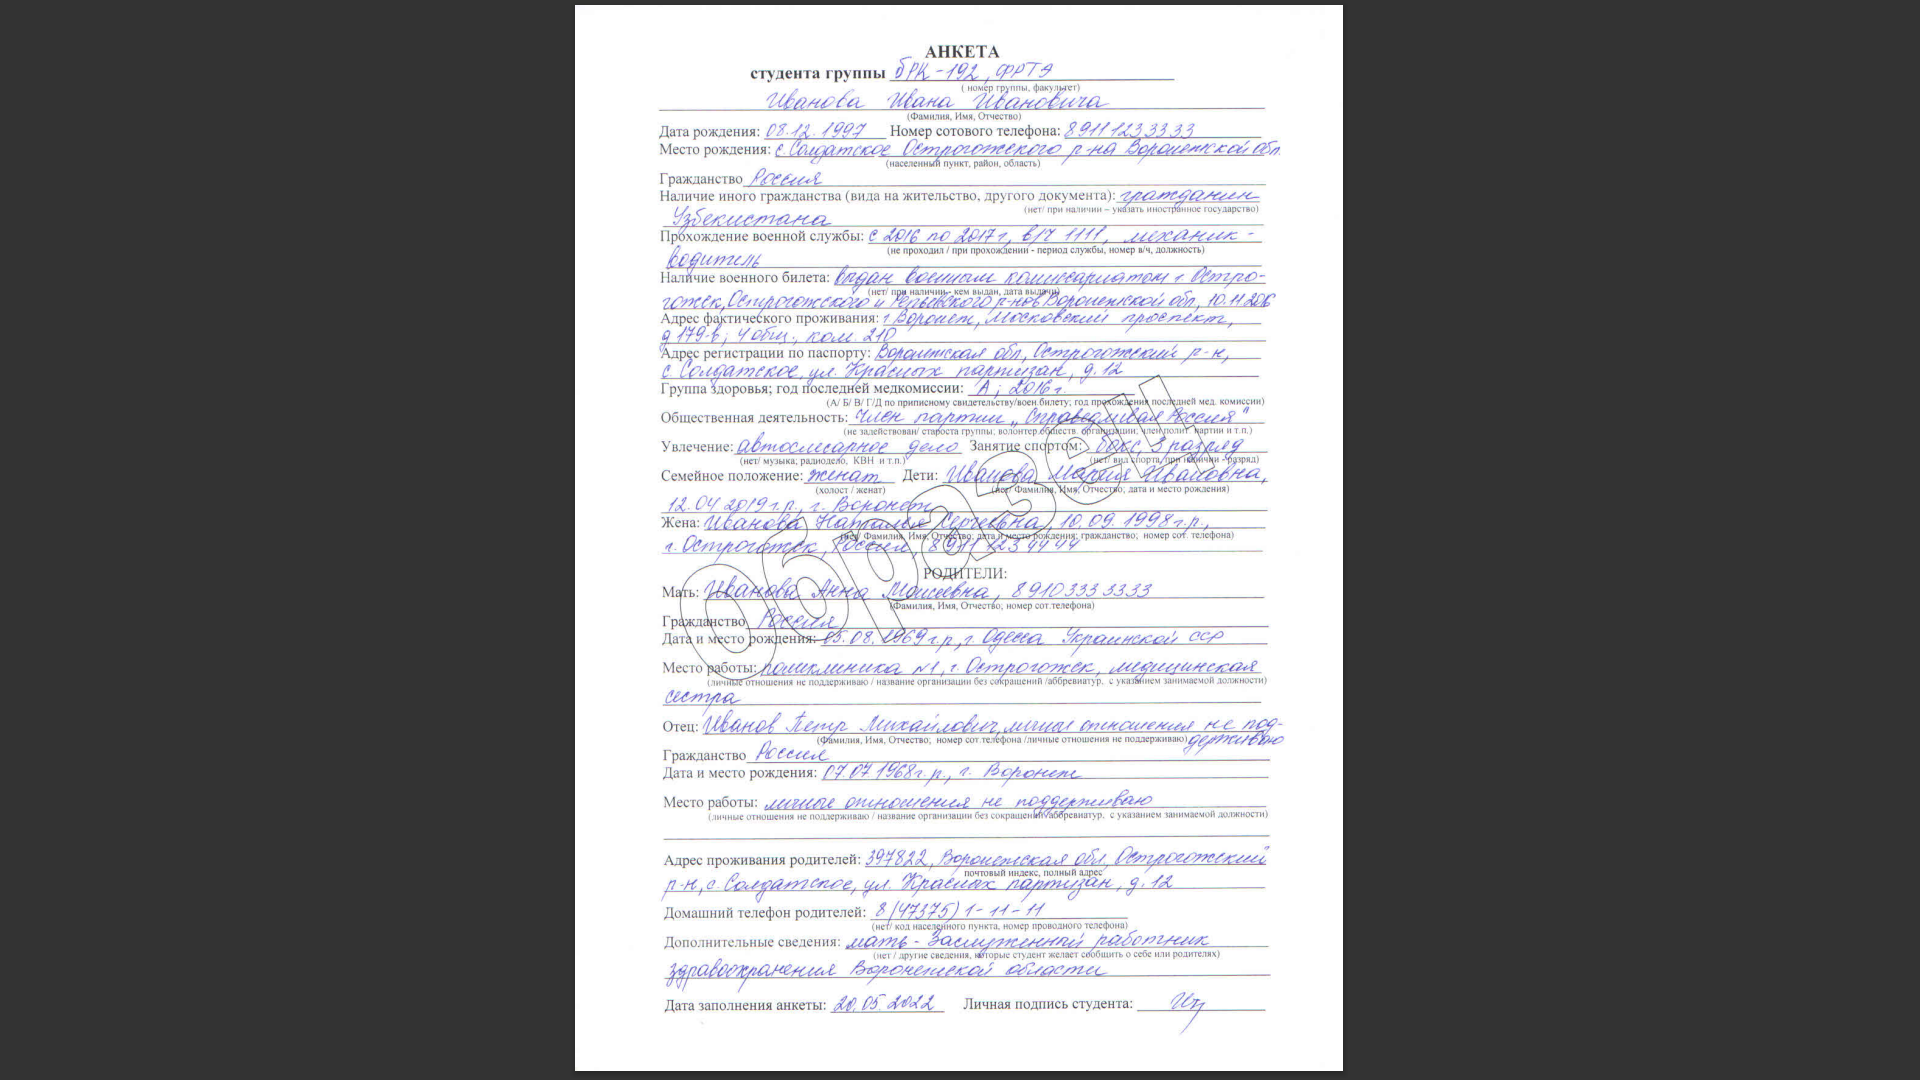 АНКЕТА
студента группы бРК-192, ФРТЭ
( номер группы, факультет)
Иванова Ивана Ивановича
(Фамилия, Имя, Отчество)
Дата рождения: 08.12.1997 Номер сотового телефона: 89111233333
Место рождения: с. Солдатское Острогожского р-на Воронежской обл.
(населенный пункт, район, область)
Гражданство Россия
Наличие иного гражданства (вида на жительство, другого документа): гражданин
(нет/ при наличии – указать иностранное государство)
Узбекистана
Прохождение военной службы: с 2016 по 2017 г, в/ч 1111, механик-
(не проходил / при прохождении - период службы, номер в/ч, должность)
водитель
Наличие военного билета: выдан военным комиссариатом г. Остро-
(нет/ при наличии - кем выдан, дата выдачи)
гожск, Острогожского и Репьевского р-нов Воронежской обл, 10.11.2016
Адрес фактического проживания: г Воронеж, Московский проспект,
д 179-в; 4 общ., ком. 210
Адрес регистрации по паспорту: Воронежская обл, Острогожский р-н,
с. Солдатское, ул. Красных партизан, д. 12
Группа здоровья; год последней медкомиссии: А; 2016 г.
(А/ Б/ В/ Г/Д по приписному свидетельству/воен.билету; год прохождения последней мед. комиссии)
Общественная деятельность: Член партии „Справедливая Россия"
(не задействован/ староста группы; волонтер,обществ. организации; член полит. партии и т.п.)
Увлечение: автослесарное дело Занятие спортом: бокс, 3 разряд
(нет/ музыка; радиодело, КВН и т.п.) (нет/ вид спорта, при наличии - разряд)
Семейное положение: женат Дети: Иванова Мария Ивановна,
(холост / женат) (нет/ Фамилия, Имя, Отчество; дата и место рождения)
12.04.2019 г.р., г. Воронеж
Жена: Иванова Наталья Сергеевна, 10.09.1998 г.р.,
(нет/ Фамилия, Имя, Отчество; дата и место рождения; гражданство; номер сот. телефона)
г. Острогожск, Россия, 89111234444
Образец
РОДИТЕЛИ:
Мать: Иванова Анна Моисеевна, 89103333333
(Фамилия, Имя, Отчество; номер сот.телефона)
Гражданство Россия
Дата и место рождения: 05.08.1969 г.р., г. Одесса Украинской ССР
Место работы: поликлиника №1, г. Острогожск, медицинская
(личные отношения не поддерживаю / название организации без сокращений /аббревиатур, с указанием занимаемой должности)
сестра
Отец: Иванов Петр Михайлович, личные отношения не под-
(Фамилия, Имя, Отчество; номер сот.телефона /личные отношения не поддерживаю) держиваю
Гражданство Россия
Дата и место рождения: 07.07.1968 г.р., г. Воронеж
Место работы: личные отношения не поддерживаю
(личные отношения не поддерживаю / название организации без сокращений/аббревиатур, с указанием занимаемой должности)
Адрес проживания родителей: 397822, Воронежская обл, Острогожский
почтовый индекс, полный адрес
р-н, с. Солдатское, ул. Красных партизан, д. 12
Домашний телефон родителей: 8(47375) 1-11-11
(нет/ код населенного пункта, номер проводного телефона)
Дополнительные сведения: мать - Заслуженный работник
(нет / другие сведения, которые студент желает сообщить о себе или родителях)
здравоохранения Воронежской области
Дата заполнения анкеты: 20.05.2022 Личная подпись студента: